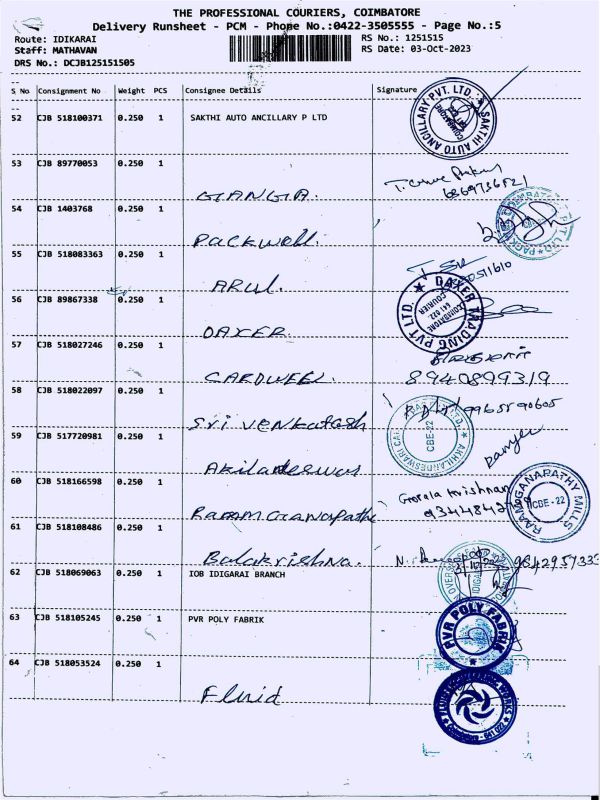 THE PROFESSIONAL COURIERS, COIMBATORE
Delivery Runsheet - PCM - Phone No.:0422-3505555 - Page No.:5
Route: IDIKARAI
RS No.: 1251515
Staff: MATHAVAN
RS Date: 03-Oct-2023
DRS No.: DCJB125151505
S No Consignment No Weight PCS Consignee Details Signature
52 CJB 518100371 0.250 1 SAKTHI AUTO ANCILLARY P LTD
SAKTHI AUTO ANCILLARY PVT. LTD.
COIMBATORE
53 CJB 89770053 0.250 1
GIANGIA
54 CJB 1403768 0.250 1
Packwell
55 CJB 518083363 0.250 1
ARUL
56 CJB 89867338 0.250 1
DAXER
DAXER TRADING PVT LTD.
COIMBATORE
641 022.
COURIER
57 CJB 518027246 0.250 1
CARDWEEL
8940899319
58 CJB 518022097 0.250 1
Sri Venkatash
9965590605
59 CJB 517720981 0.250 1
CBE-22
60 CJB 518166598 0.250 1
Gorala krishnan
RAAMAGANAPATHY MILLS
CBE - 22
61 CJB 518108486 0.250 1
Balakrishna
62 CJB 518069063 0.250 1 IOB IDIGARAI BRANCH
63 CJB 518105245 0.250 1 PVR POLY FABRIK
PVR POLY FABRIK
64 CJB 518053524 0.250 1
Fluid